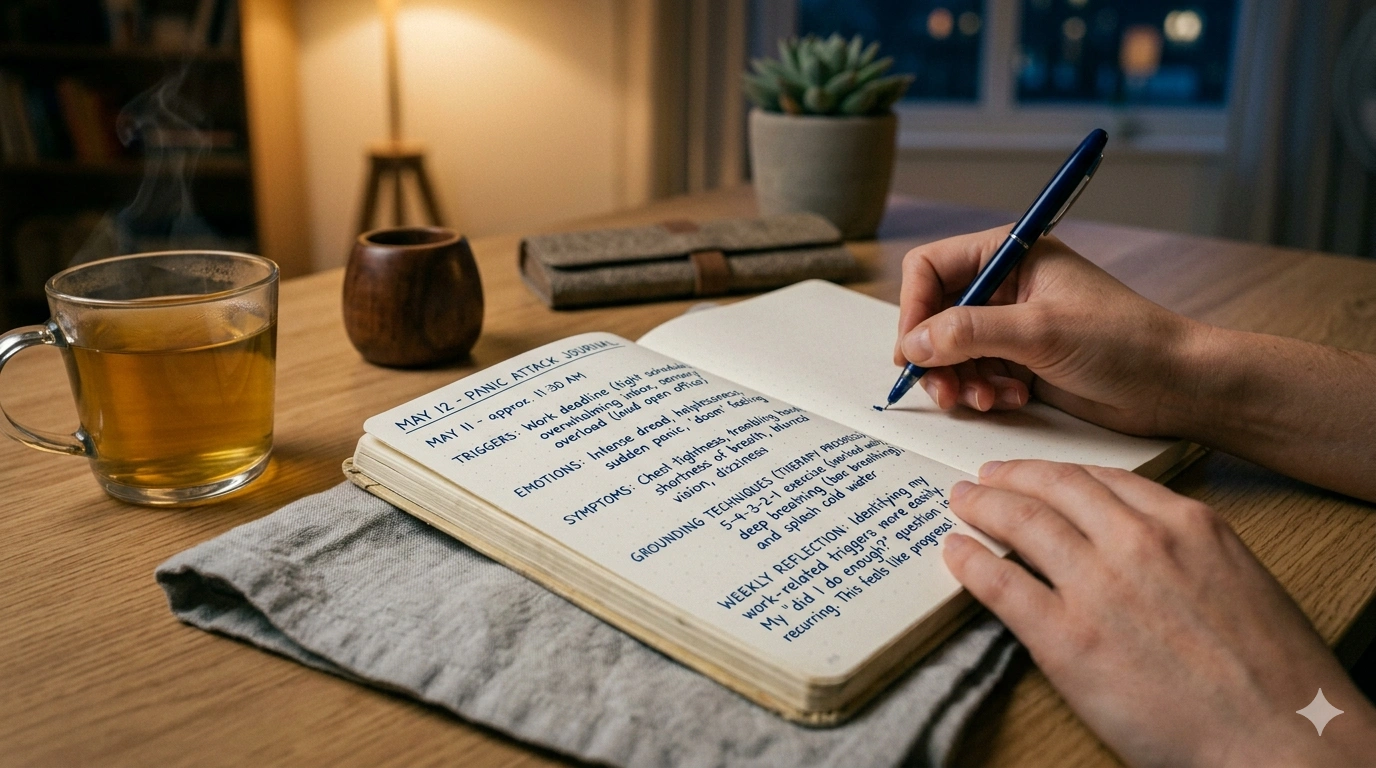 MAY 12 - PANIC ATTACK JOURNAL
MAY 11 - approx. 11:30 AM
TRIGGERS: Work deadline (tight schedule),
overwhelming inbox, sensory
overload (loud open office)
EMOTIONS: Intense dread, helplessness,
sudden panic, "doom" feeling
SYMPTOMS: Chest tightness, trembling hands,
shortness of breath, blurred
vision, dizziness
GROUNDING TECHNIQUES (THERAPY PROGRESS):
5-4-3-2-1 exercise (worked well),
deep breathing (box breathing),
and splash cold water
WEEKLY REFLECTION: Identifying my
work-related triggers more easily.
My "did I do enough?" question is
recurring. This feels like progress!